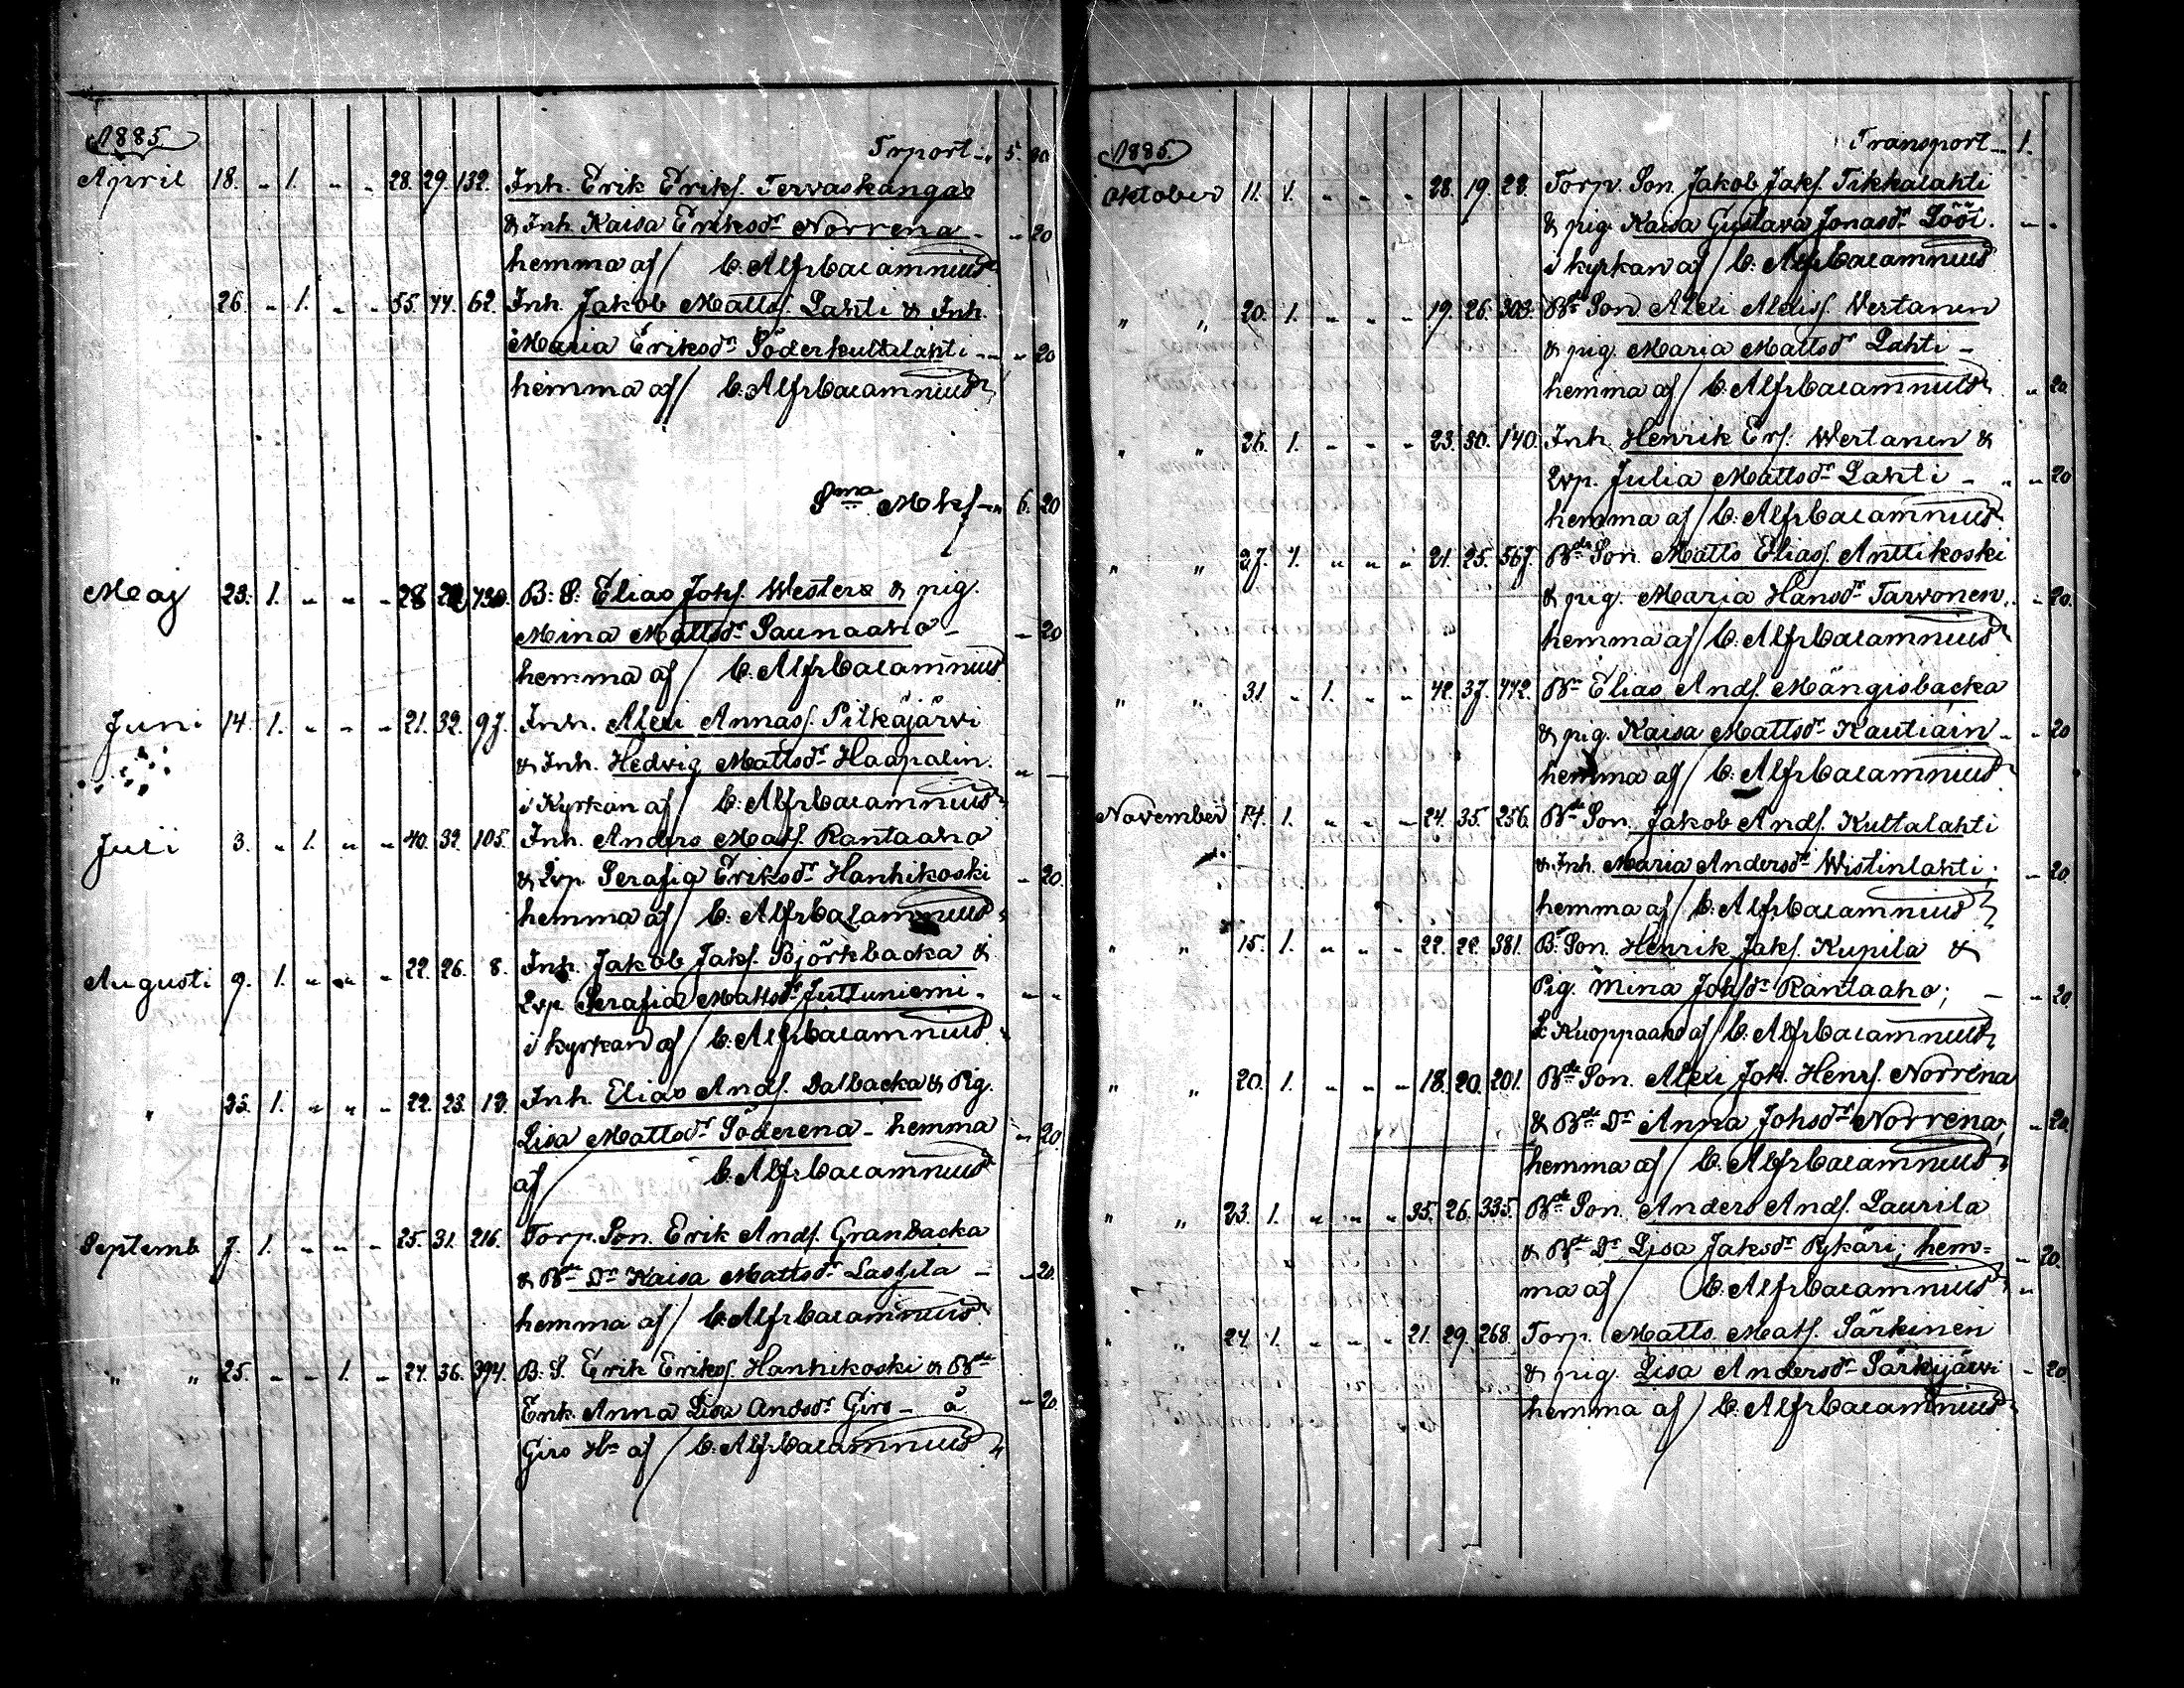 1885.
Trport „ 5. 80
April 18. „ 1. „ „ 28. 29. 132. Inh. Erik Eriks. Tervaskangas
& Inh. Kaisa Eriksdr Norrena - „ 20
hemma af / C. Alfr Calamnius
26. „ 1. „ „ 55. 44. 62. Inh. Jakob Matts. Lahti & Inh.
Maria Eriksdr Söderkultalahti - „ 20
hemma af / C. Alfr Calamnius
Sma Mkf „ 6. 20
Maj 23. 1. „ „ „ 28 730. B. S. Elias Johs. Westere & pig.
Mina Mattsdr Saunaaho - „ 20
hemma af / C. Alfr Calamnius
Juni 14. 1. „ „ „ 21. 32. 97. Inh. Alexi Annas. Pitkäjärvi
& Inh. Hedvig Mattsdr Haapalin. „ -
i Kyrkan af / C. Alfr Calamnius
Juli 3. „ 1. „ „ 40. 32. 105. Inh. Anders Mats. Rantaaho
& Lvp. Serafia Eriksdr Hanhikoski - 20.
hemma af / C. Alfr Calamnius
Augusti 9. 1. „ „ „ 22. 26. 8. Inh. Jakob Jaks. Björkbacka &
Lvp Serafia Mattsdr Juttuniemi. „ „
i kyrkan af / C. Alfr Calamnius
„ 23. 1. „ „ „ 22. 23. 13. Inh. Elias Ands. Dalbacka & Pig.
Lisa Mattsdr Söderena - hemma „ 20
af / C. Alfr Calamnius
Septemb 7. 1. „ „ „ 25. 31. 216. Torp. Son. Erik Ands. Granbacka
& Bde Dr Kaisa Mattsdr Lassila - „ 20.
hemma af / C. Alfr Calamnius
„ „ 25. „ „ 1. „ 27. 36. 394. B. S. Erik Eriks. Hanhikoski & Bde
Enk. Anna Lisa Andsdr Girs - å - 20
Girs Hn af / C. Alfr Calamnius
1885.
Transport „ 1.
Oktober 11. 1. „ „ „ 28. 19. 28. Torp. Son. Jakob Jaks. Tikkalahti
& pig. Kaisa Gustava Jonasdr Lööi. „ „
i kyrkan af / C. Alfr Calamnius
„ „ 20. 1. „ „ „ 19. 26. 303. Bde Son Alexi Alexis. Wertanen
& pig. Maria Mattsdr Lahti -
hemma af / C. Alfr Calamnius „ 20
„ „ 26. 1. „ „ „ 23. 30. 140. Inh. Henrik Ers. Wertanen &
Lvp. Julia Mattsdr Lahti - „ 20
hemma af / C. Alfr Calamnius
„ „ 27. 1. „ „ „ 21. 25. 567. Bde Son. Matts Elias. Anttikoski
& pig. Maria Hansdr Tarvonen. - 20.
hemma af / C. Alfr Calamnius
„ „ 31. „ 1. „ „ 42. 37. 442. Bn Elias Ands. Mängisbacka
& pig. Kaisa Mattsdr Kautiain - „ 20
hemma af / C. Alfr Calamnius
November 14. 1. „ „ „ 24. 35. 256. Bde Son. Jakob Ands. Kultalahti
& Inh. Maria Andersdr Wistinlahti; - 20.
hemma af / C. Alfr Calamnius
„ „ 15. 1. „ „ „ 22. 22. 381. B. Son. Henrik Jaks. Kupila &
Pig. Mina Johsdr Rantaaho; - „ 20
å Kuoppaaho af / C. Alfr Calamnius
„ „ 20. 1. „ „ „ 18. 20. 201. Bde Son. Alexi Joh. Henrs. Norrena
& Bde Dr Anna Johsdr Norrena, - 20.
hemma af / C. Alfr Calamnius
„ „ 23. 1. „ „ „ 35. 26. 335. Bde Son. Anders Ands. Laurila
& Bde Dr Lisa Jaksdr Pykäri; hem= - 20.
ma af / C. Alfr Calamnius „
„ „ 24 1. „ „ „ 21. 29. 268. Torp. Matts Mats. Särkinen
& pig. Lisa Andersdr Särkijärvi - 20
hemma af / C. Alfr Calamnius